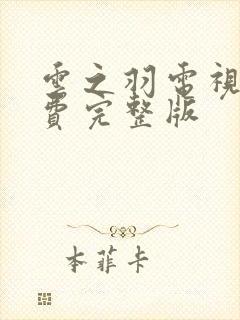 雲之羽電視
費完整版
本菲卡